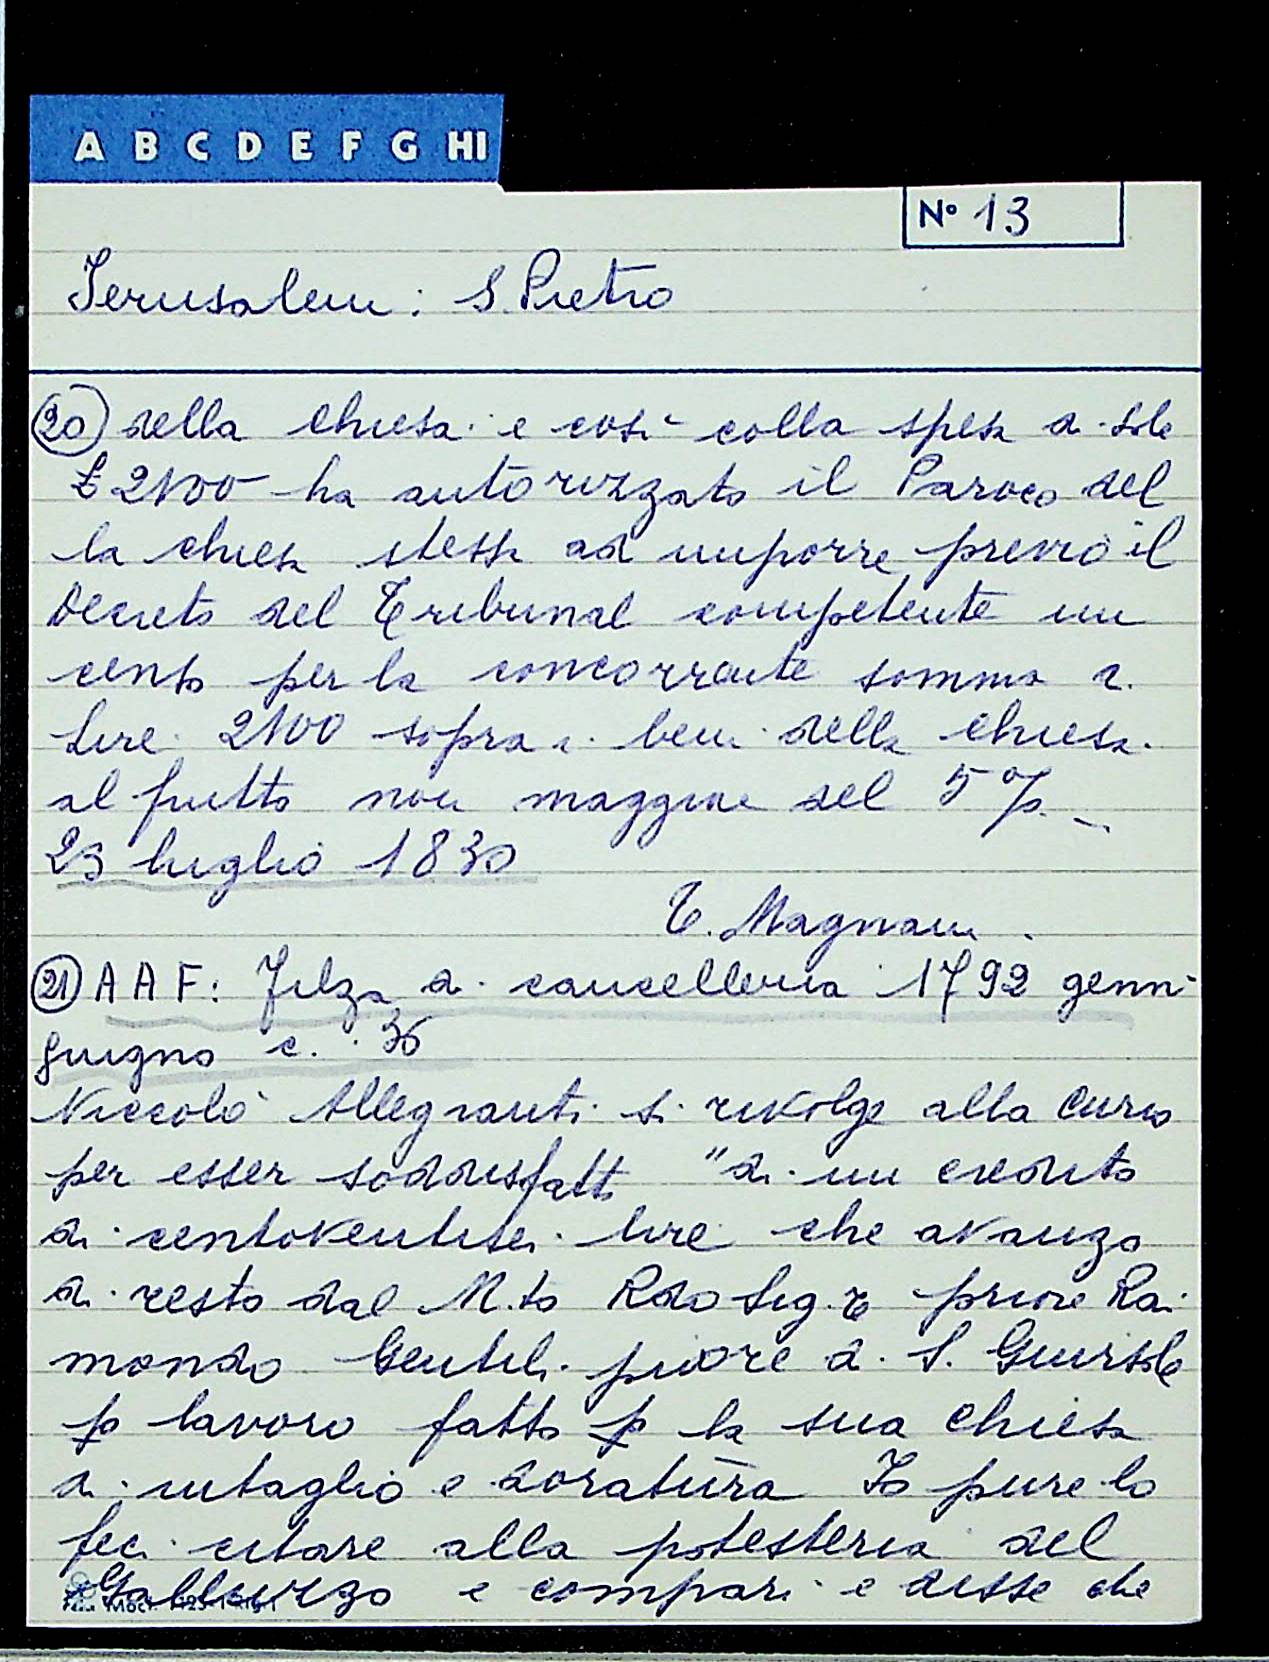 A B C D E F G HI
Nº 13
Jerusalem: S. Pietro
20) della chiesa e così colla spesa di sole
£ 2100 ha autorizzato il Paroco del
la chiesa stessa ad imporre previo il
Decreto del Tribunal competente un
censo per la concorrente somma di
Lire 2100 sopra i beni della chiesa
al frutto non maggiore del 5%
23 luglio 1830
T. Magnani.
21) A A F: Filza di cancelleria 1792 genn-
giugno c. 36
Niccolò Allegranti si rivolge alla Curia
per esser soddisfatto "di un credito
di centoventisei lire che avanzo
di resto dal M.to Rdo Sig.re priore Rai
mondo Gentili priore di S. Gersolè
p lavoro fatto p la sua chiesa
di intaglio e doratura Io pure lo
feci citare alla potesteria del
Galluzzo e comparì e disse che